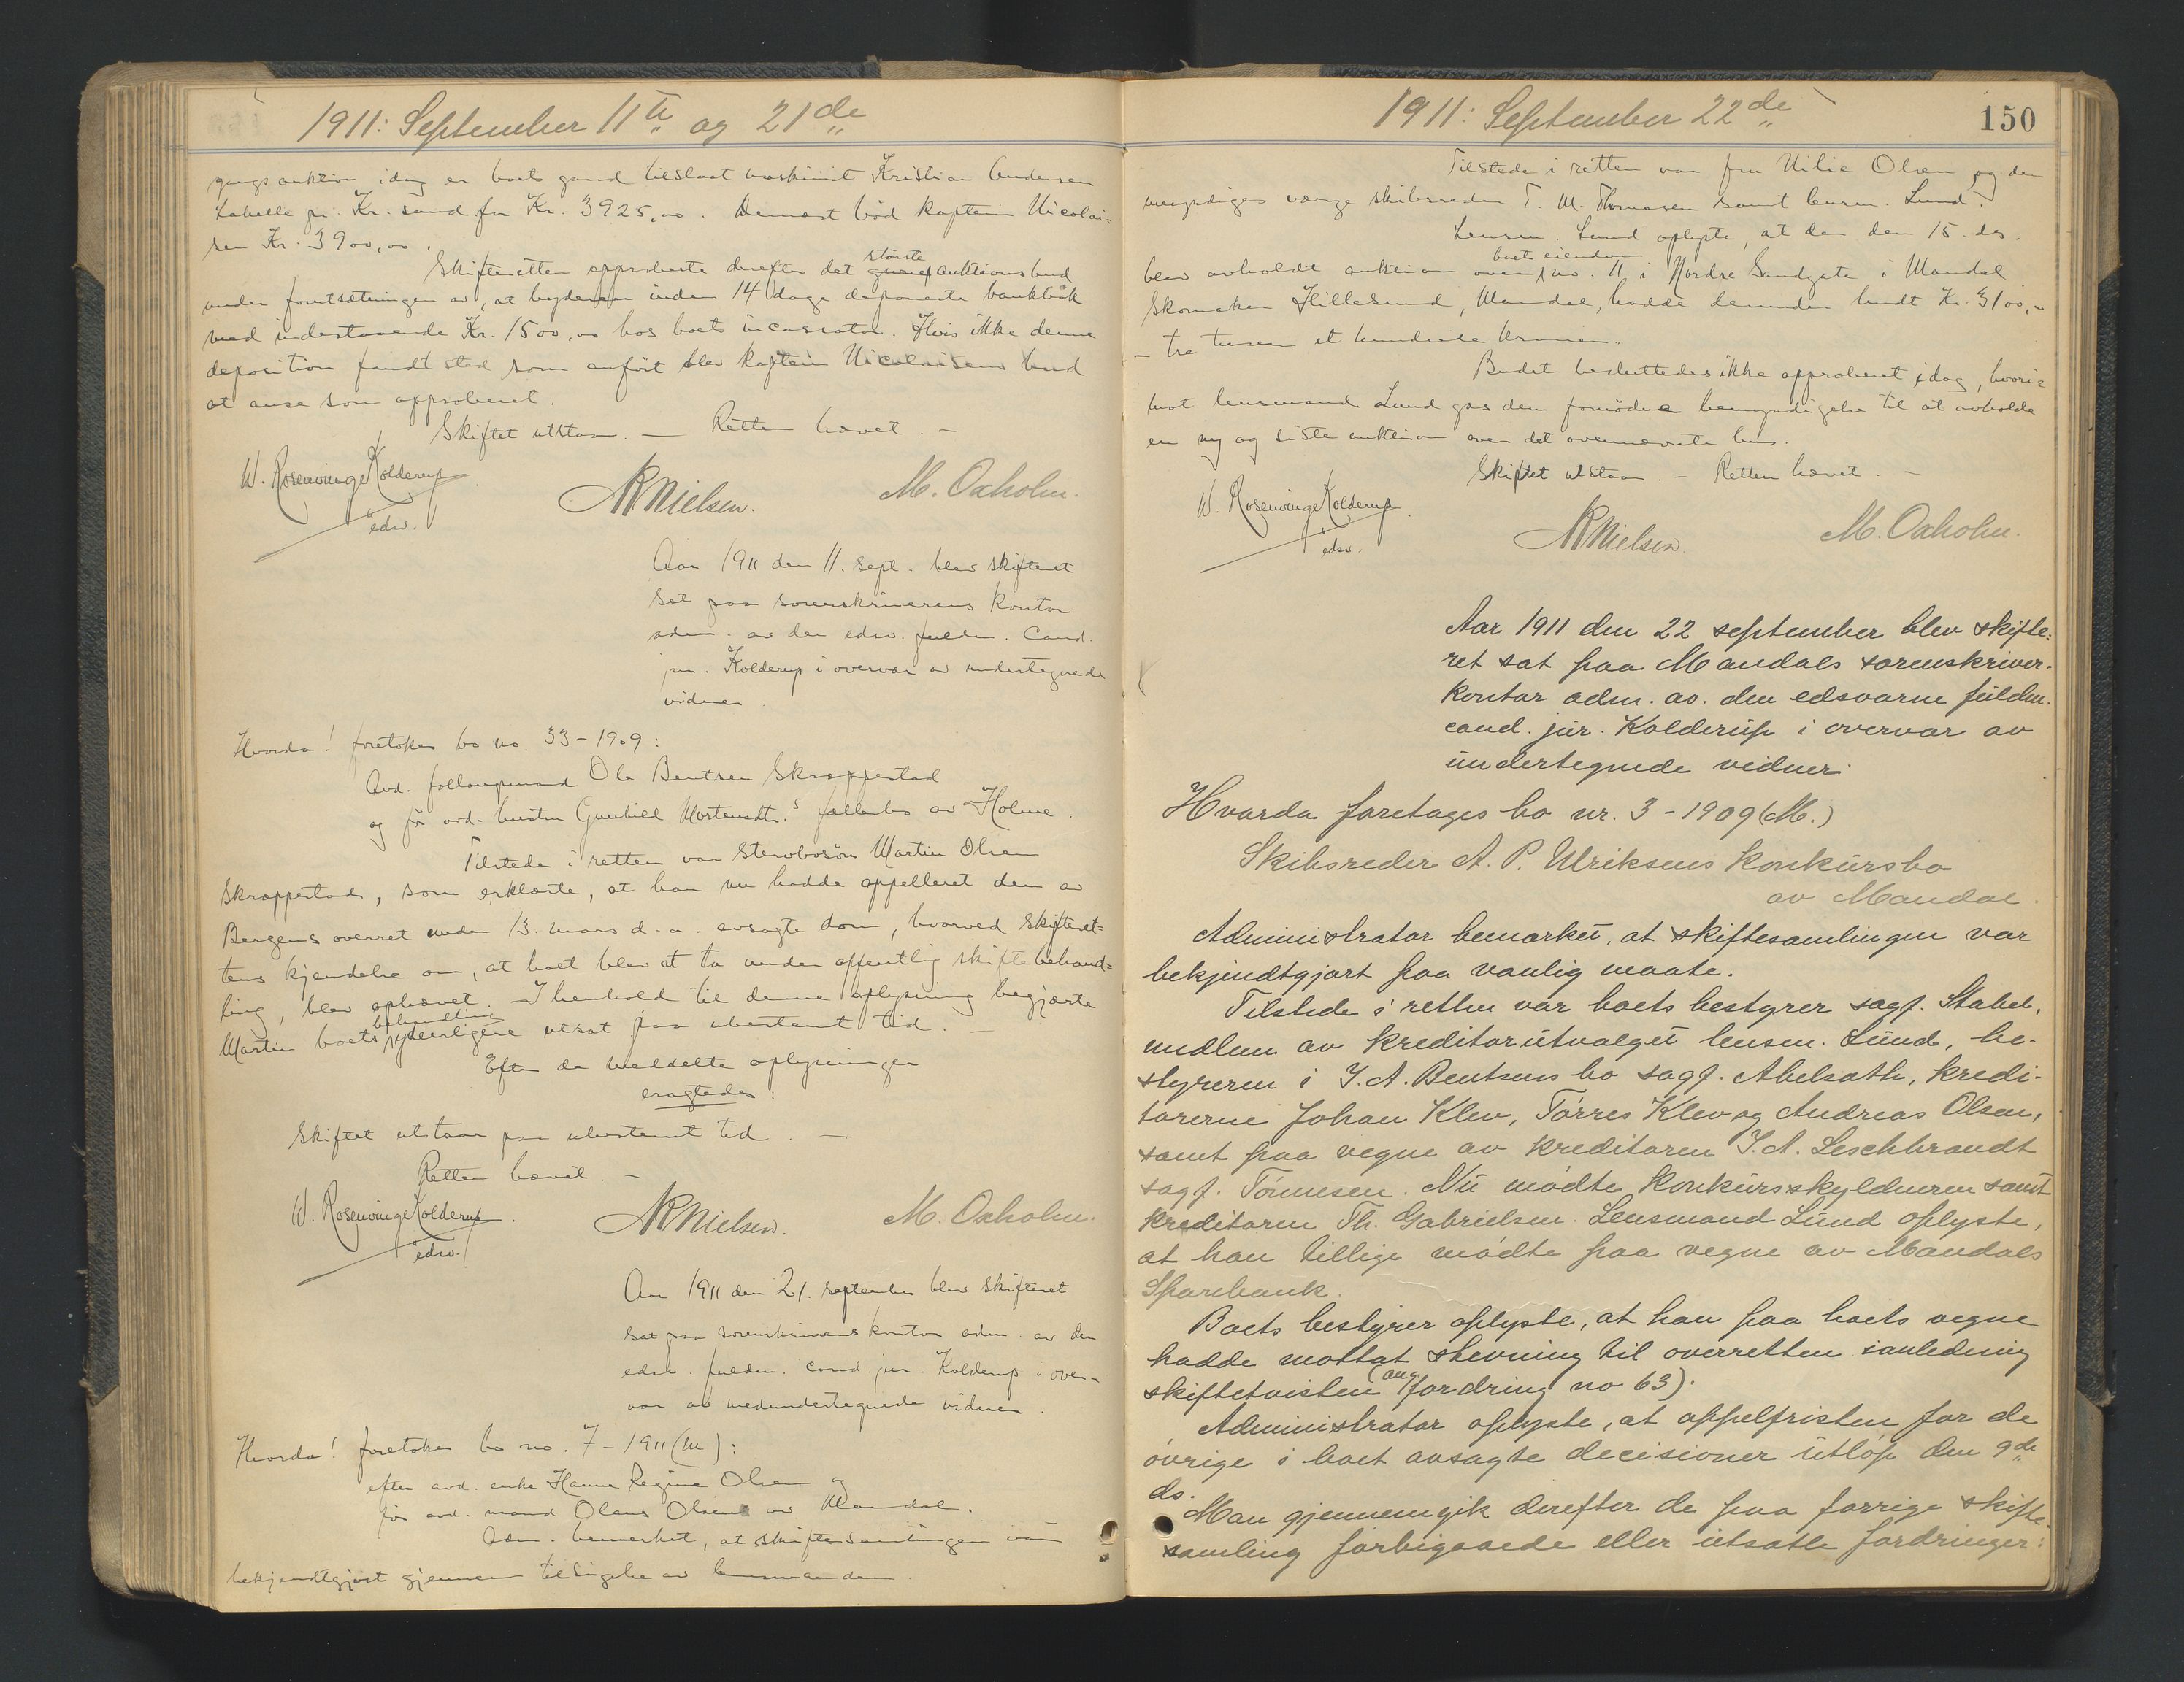 1911: September 11te og 21de
gangs auktion idag er boets gaard tilslaat maskinist Kristian Andersen
Labelle pr. Kr.sand for Kr. 3925,00. Dernæst bød kaptein Nicolai-
sen Kr. 3900,00.
Skifteretten approberte derefter det største auktionsbud
under forutsætningen av, at byderen inden 14 dage deponerte bankbok
med indestaaende Kr. 1500,00 hos boets incassator. Hvis ikke denne
deposition fandt sted som anført blev kaptein Nicolaisens bud
at anse som approberet.
Skiftet utstaar. — Retten hævet —
W. Rosenvinge Kolderup
edsv.
NRNielsen.
M. Oxholm.
Aar 1911 den 11. sept. blev skifteret
sat paa sorenskriverens kontor
adm. av den edsv. fuldm. cand.
jur. Kolderup i overvær av undertegnede
vidner.
Hvorda! foretokes bo no. 33-1909:
Avd. follaugsmand Ole Bentsen Skrøppestad
og før avd. hustru Gunhild Mortensdtr.s fællesbo av Holme.
Tilstede i retten var stervbosøn Martin Olsen
Skrøppestad, som erklærte, at han nu hadde appelleret den av
Bergens overret under 13. mars d. a. avsagte dom, hvorved skifteret-
tens kjendelse om, at boet blev at ta under offentlig skiftebehand-
ling, blev ophævet. – I henhold til denne oplysning begjærte
Martin boets behandling yderligere utsat paa ubestemt tid. —
Efter de meddelte oplysninger
eragtedes:
Skiftet utstaar paa ubestemt tid. —
Retten hævet. —
W. Rosenvinge Kolderup.
edsv.
NRNielsen.
M. Oxholm.
Aar 1911 den 21. september blev skifteret
sat paa sorenskriverens kontor adm. av den
edsv. fuldm. cand. jur. Kolderup i over-
vær av medundertegnede vidner.
Hvorda! foretokes bo no. 7-1911(M):
efter avd. enke Hanne Regine Olsen og
før avd. mand Olaus Olsen av Mandal.
Adm. bemerket, at skiftesamlingen var
bekjendtgjort gjennem tilsigelse av lensmanden.
1911: September 22de
150
Tilstede i retten var fru Olsen og den
umyndiges værge skibsreder T. M. Thomasen samt lensm. Lund.
Lensm. Lund oplyste, at der den 15. ds.
blev avholdt auktion over boets eiendom nr. 11 i Nordre Sandgate i Mandal
Skomaker Hillesund, Mandal, hadde derunder budt Kr. 3100,-
– tre tusen et hundrede kroner.
Budet besluttedes ikke approberet idag, hvori-
mot lensmand Lund gas den fornødne bemyndigelse til at avholde
en ny og siste auktion over det ovennævnte hus.
Skiftet utstaar. – Retten hævet. –
W. Rosenvinge Kolderup.
edsv.
NRNielsen
M. Oxholm.
Aar 1911 den 22 september blev skifte-
ret sat paa Mandals sorenskriver-
kontor adm. av. den edsvorne fuldm.
cand. jur. Kolderup i overvær av
undertegnede vidner.
Hvorda foretages bo nr. 3-1909(M.)
Skibsreder A. P. Ulriksens konkursbo
av Mandal.
Administrator bemerket, at skiftesamlingen var
bekjendtgjort paa vanlig maate.
Tilstede i retten var boets bestyrer sagf. Stabel,
medlem av kreditorutvalget lensm. Lund, be-
styreren i J. A. Bentsens bo sagf. Abelsøth, kredi-
torerne Johan Klev, Tørres Klev og Andreas Olsen,
samt paa vegne av kreditoren J. A. Leschbrandt
sagf. Tønnesen. Nu mødte konkursskyldneren samt
kreditoren Th. Gabrielsen. Lensmand Lund oplyste,
at han tillige mødte paa vegne av Mandals
Sparebank.
Boets bestyrer oplyste, at han paa boets vegne
hadde mottat stevning til overretten ianledning
skiftetvisten (ang. fordring no 63).
Administrator oplyste, at appelfristen for de
øvrige i boet avsagte decisioner utløp den 9de
ds.
Man gjennemgik derefter de paa forrige skifte-
samling forbigaaede eller utsatte fordringer: